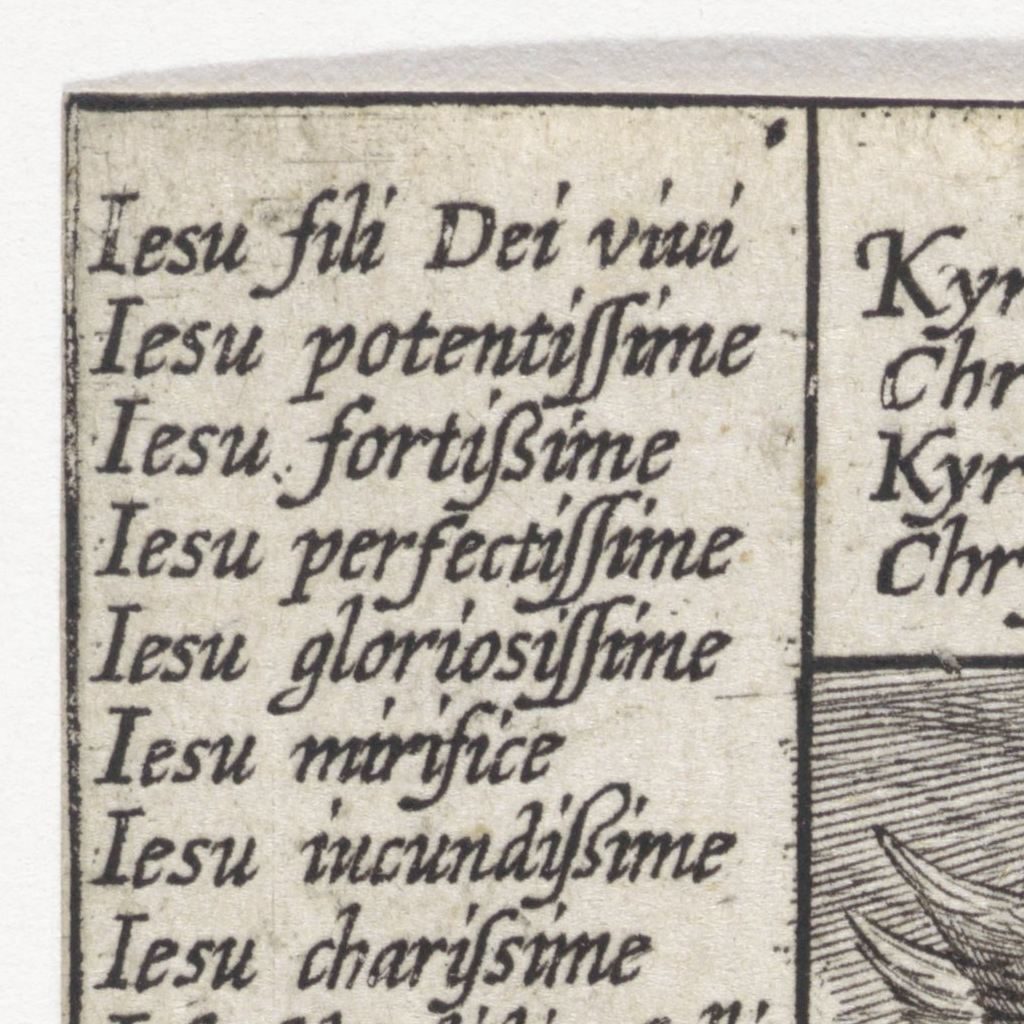 Iesu fili Dei viui
Iesu potentiſſime
Iesu fortiſsime
Iesu perfectiſſime
Iesu glorioſiſſime
Iesu mirifice
Iesu iucundiſsime
Iesu chariſsime
Kyr
Chr
Kyr
Chr